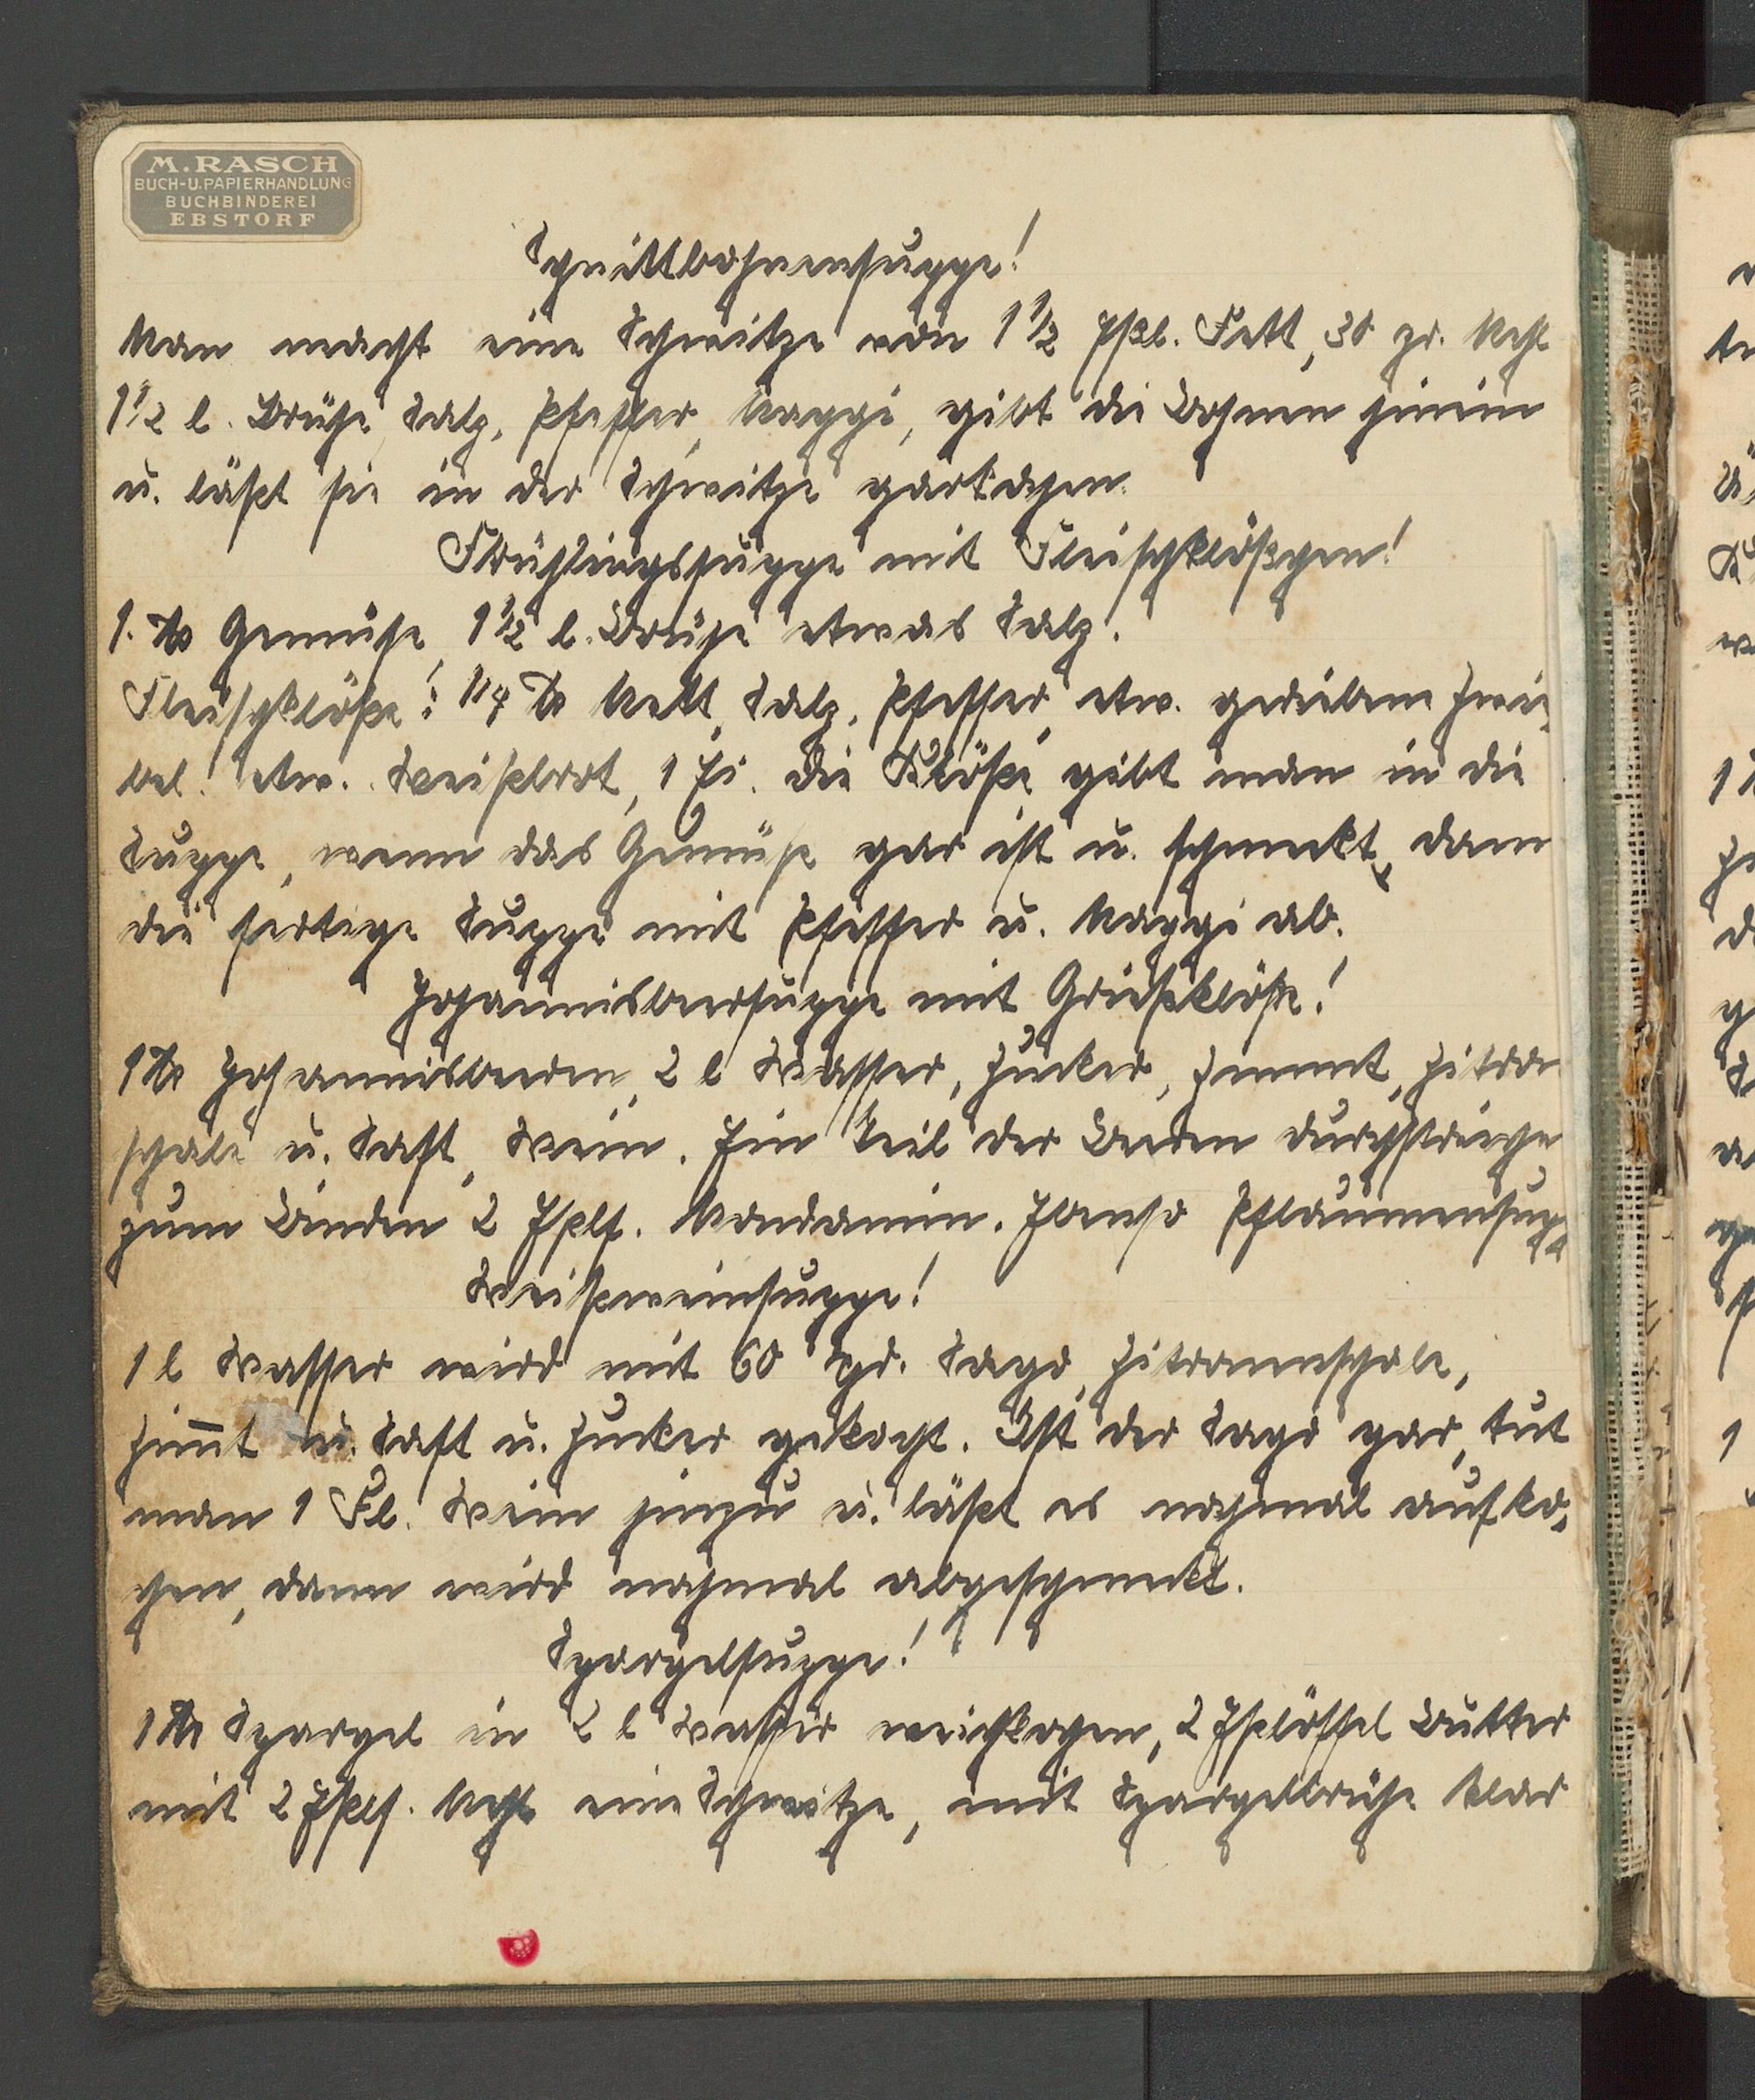 M. RASCH
BUCH- U. PAPIERHANDLUNG
BUCHBINDEREI
EBSTORF
Schnittbohnensuppe!
Man macht eine Schwitze von 1 1/2 Eßl. Fett, 30 gr. Mehl
1 1/2 l. Brühe, Salz, Pfeffer, Maggi, gibt die Bohnen hinein
u. läßt sie in der Schwitze garkochen.
Frühlingssuppe mit Fleischklößchen!
1. ℔ Gemüse, 1 1/2 l. Brühe etwas Salz.
Fleischklöße: 1/4 ℔ Mett, Salz, Pfeffer, etw. geriebene Zwie-
bel. etw. Weißbrot, 1 Ei. Die Klöße gibt man in die
Suppe, wenn das Gemüse gar ist u. schmeckt, dann
die fertige Suppe mit Pfeffer u. Maggi ab.
Johannisbeersuppe mit Grießklöße!
1 ℔ Johannisbeeren, 2 l Wasser, Zucker, Zimmt, Zitron
schale u. Saft, Wein. Ein Teil der Beeren durchstreichen
zum Binden 2 Eßlf. Mondamin. Ebenso Pflaumensuppe
Weißweinsuppe!
1 l Wasser wird mit 60 gr. Sago, Zitronenschale,
Zim̄t u. Saft u. Zucker gekocht. Ist der Sago gar, tut
man 1 Fl. Wein hinzu u. läßt es nochmal aufko-
chen, dann wird nochmal abgeschmeckt.
Spargelsuppe!
1 ℔ Spargel in 2 l Wasser weichkochen, 2 Eßlöffel Butter
mit 2 Eßlf. Mehl eine Schwitze, mit Spargelbrühe klar